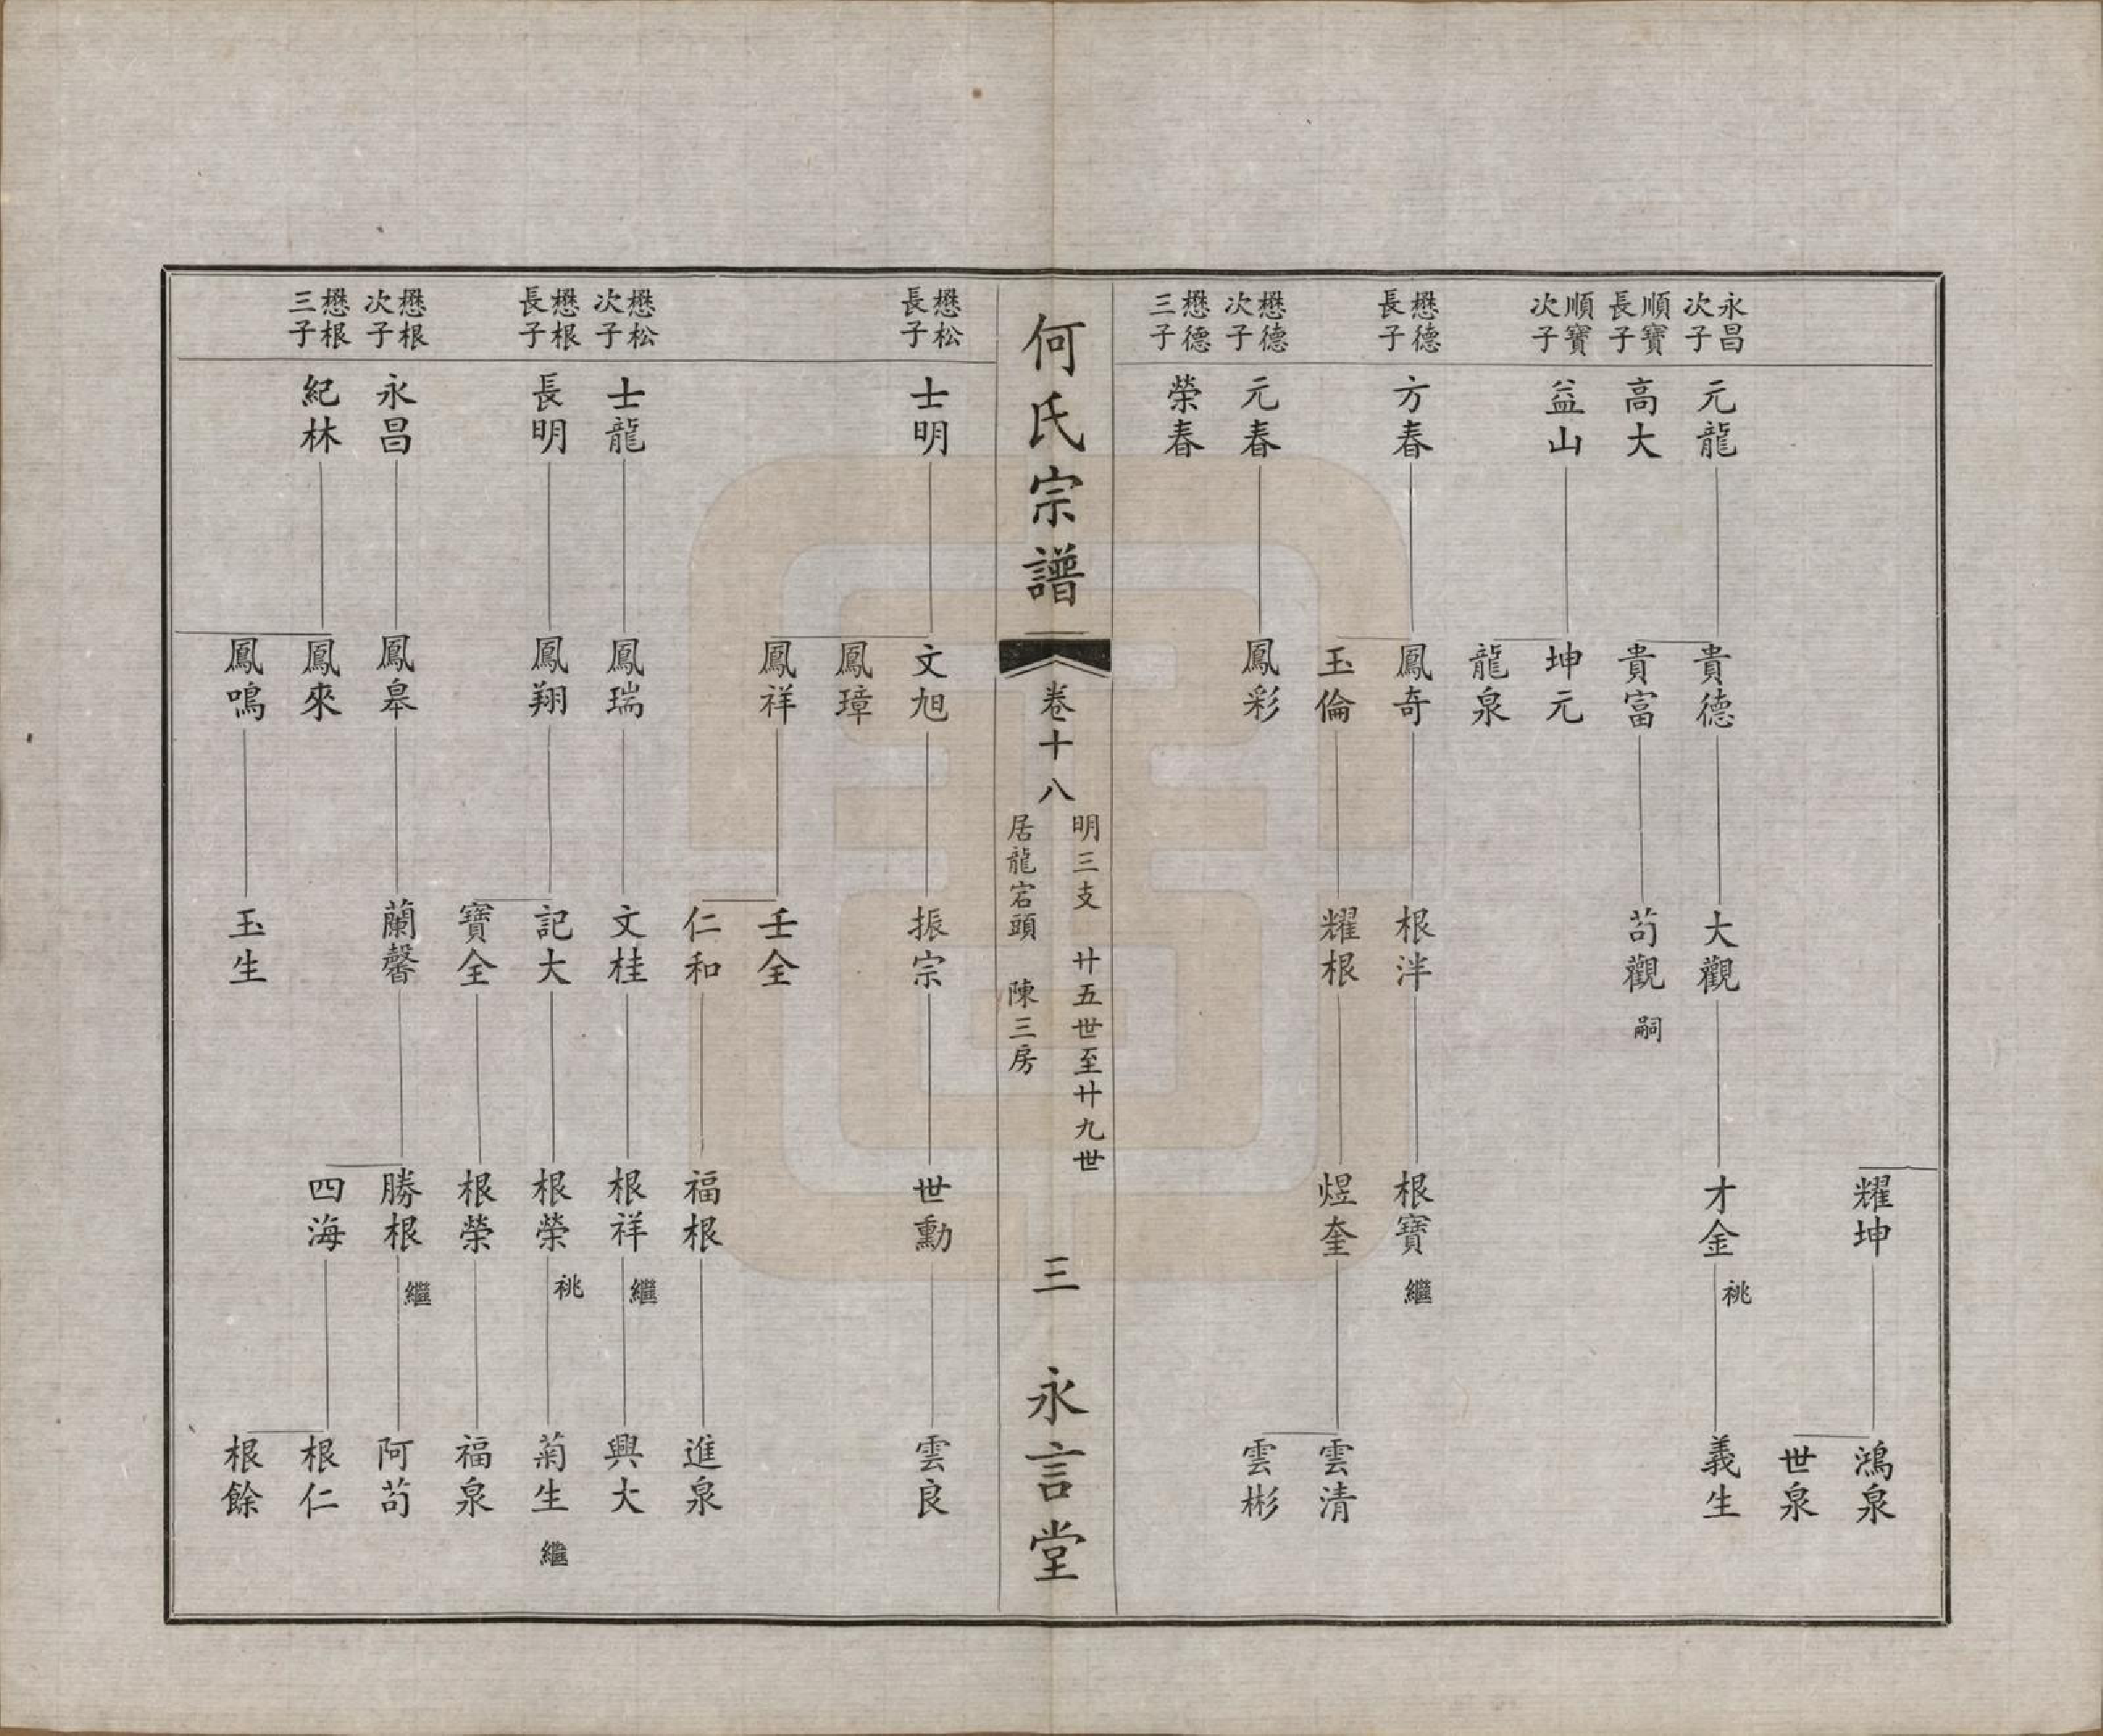 耀坤
鴻泉
世泉
永昌
次子
元龍
貴德
大觀
才金
祧
義生
順寶
長子
高大
貴富
苟觀
嗣
順寶
次子
益山
坤元
龍泉
懋德
長子
方春
鳳奇
根泮
根寶
繼
玉倫
耀根
煜奎
雲清
懋德
次子
元春
鳳彩
雲彬
懋德
三子
榮春
何氏宗譜
卷十八
明三支 廿五世至廿九世
居龍宕頭 陳三房
三
永言堂
懋松
長子
士明
文旭
振宗
世勳
雲良
鳳璋
鳳祥
壬全
仁和
福根
進泉
懋松
次子
士龍
鳳瑞
文桂
根祥
繼
興大
懋根
長子
長明
鳳翔
記大
根榮
祧
菊生
繼
寶全
根榮
福泉
懋根
次子
永昌
鳳皋
蘭馨
勝根
繼
阿苟
懋根
三子
紀林
鳳來
四海
根仁
鳳鳴
玉生
根餘